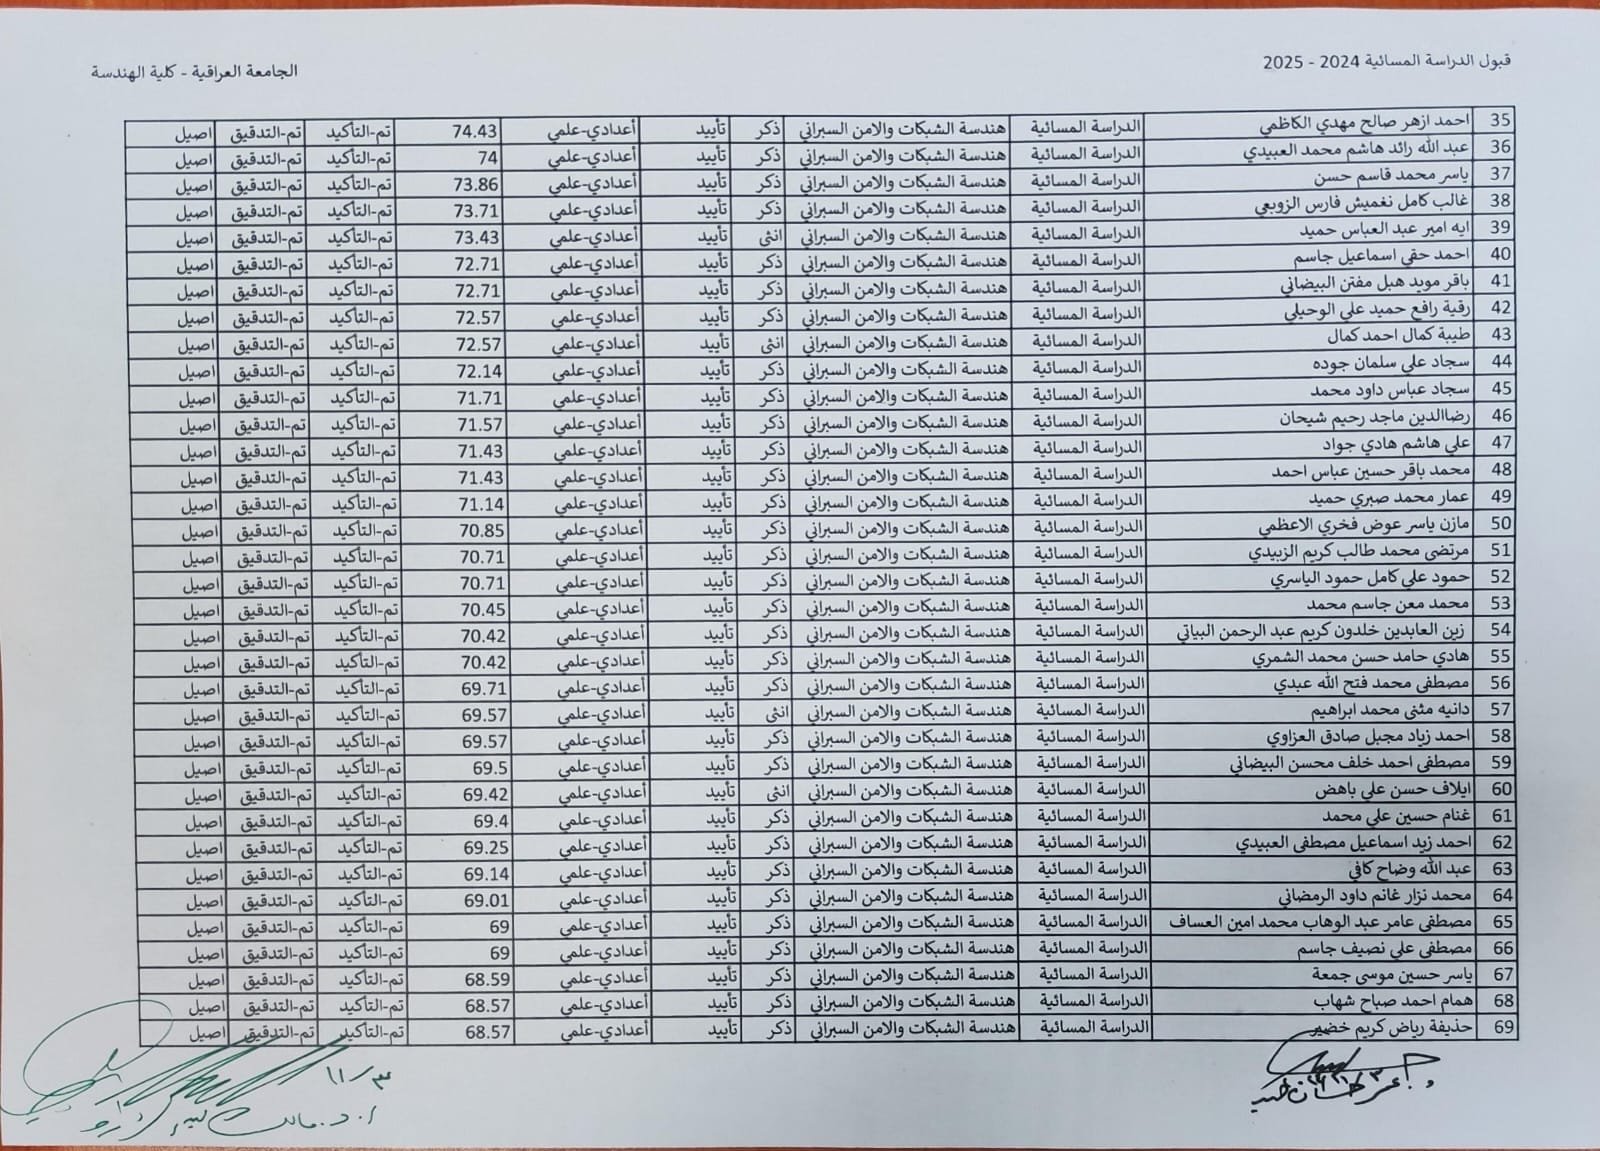 قبول الدراسة المسائية 2024 - 2025
الجامعة العراقية - كلية الهندسة
35 احمد ازهر صالح مهدي الكاظمي الدراسة المسائية هندسة الشبكات والامن السبراني ذكر تأييد أعدادي-علمي 74.43 تم-التأكيد تم-التدقيق اصيل
36 عبد الله رائد هاشم محمد العبيدي الدراسة المسائية هندسة الشبكات والامن السبراني ذكر تأييد أعدادي-علمي 74 تم-التأكيد تم-التدقيق اصيل
37 ياسر محمد قاسم حسن الدراسة المسائية هندسة الشبكات والامن السبراني ذكر تأييد أعدادي-علمي 73.86 تم-التأكيد تم-التدقيق اصيل
38 غالب كامل نغميش فارس الزوبعي الدراسة المسائية هندسة الشبكات والامن السبراني ذكر تأييد أعدادي-علمي 73.71 تم-التأكيد تم-التدقيق اصيل
39 ايه امير عبد العباس حميد الدراسة المسائية هندسة الشبكات والامن السبراني انثى تأييد أعدادي-علمي 73.43 تم-التأكيد تم-التدقيق اصيل
40 احمد حقي اسماعيل جاسم الدراسة المسائية هندسة الشبكات والامن السبراني ذكر تأييد أعدادي-علمي 72.71 تم-التأكيد تم-التدقيق اصيل
41 باقر مويد هبل مفتن البيضاني الدراسة المسائية هندسة الشبكات والامن السبراني ذكر تأييد أعدادي-علمي 72.71 تم-التأكيد تم-التدقيق اصيل
42 رقية رافع حميد علي الوحيلي الدراسة المسائية هندسة الشبكات والامن السبراني ذكر تأييد أعدادي-علمي 72.57 تم-التأكيد تم-التدقيق اصيل
43 طيبة كمال احمد كمال الدراسة المسائية هندسة الشبكات والامن السبراني انثى تأييد أعدادي-علمي 72.57 تم-التأكيد تم-التدقيق اصيل
44 سجاد علي سلمان جوده الدراسة المسائية هندسة الشبكات والامن السبراني ذكر تأييد أعدادي-علمي 72.14 تم-التأكيد تم-التدقيق اصيل
45 سجاد عباس داود محمد الدراسة المسائية هندسة الشبكات والامن السبراني ذكر تأييد أعدادي-علمي 71.71 تم-التأكيد تم-التدقيق اصيل
46 رضاالدين ماجد رحيم شيحان الدراسة المسائية هندسة الشبكات والامن السبراني ذكر تأييد أعدادي-علمي 71.57 تم-التأكيد تم-التدقيق اصيل
47 علي هاشم هادي جواد الدراسة المسائية هندسة الشبكات والامن السبراني ذكر تأييد أعدادي-علمي 71.43 تم-التأكيد تم-التدقيق اصيل
48 محمد باقر حسين عباس احمد الدراسة المسائية هندسة الشبكات والامن السبراني ذكر تأييد أعدادي-علمي 71.43 تم-التأكيد تم-التدقيق اصيل
49 عمار محمد صبري حميد الدراسة المسائية هندسة الشبكات والامن السبراني ذكر تأييد أعدادي-علمي 71.14 تم-التأكيد تم-التدقيق اصيل
50 مازن ياسر عوض فخري الاعظمي الدراسة المسائية هندسة الشبكات والامن السبراني ذكر تأييد أعدادي-علمي 70.85 تم-التأكيد تم-التدقيق اصيل
51 مرتضى محمد طالب كريم الزبيدي الدراسة المسائية هندسة الشبكات والامن السبراني ذكر تأييد أعدادي-علمي 70.71 تم-التأكيد تم-التدقيق اصيل
52 حمود علي كامل حمود الياسري الدراسة المسائية هندسة الشبكات والامن السبراني ذكر تأييد أعدادي-علمي 70.71 تم-التأكيد تم-التدقيق اصيل
53 محمد معن جاسم محمد الدراسة المسائية هندسة الشبكات والامن السبراني ذكر تأييد أعدادي-علمي 70.45 تم-التأكيد تم-التدقيق اصيل
54 زين العابدين خلدون كريم عبد الرحمن البياتي الدراسة المسائية هندسة الشبكات والامن السبراني ذكر تأييد أعدادي-علمي 70.42 تم-التأكيد تم-التدقيق اصيل
55 هادي حامد حسن محمد الشمري الدراسة المسائية هندسة الشبكات والامن السبراني ذكر تأييد أعدادي-علمي 70.42 تم-التأكيد تم-التدقيق اصيل
56 مصطفى محمد فتح الله عبدي الدراسة المسائية هندسة الشبكات والامن السبراني ذكر تأييد أعدادي-علمي 69.71 تم-التأكيد تم-التدقيق اصيل
57 دانيه مثنى محمد ابراهيم الدراسة المسائية هندسة الشبكات والامن السبراني انثى تأييد أعدادي-علمي 69.57 تم-التأكيد تم-التدقيق اصيل
58 احمد زياد مجبل صادق العزاوي الدراسة المسائية هندسة الشبكات والامن السبراني ذكر تأييد أعدادي-علمي 69.57 تم-التأكيد تم-التدقيق اصيل
59 مصطفى احمد خلف محسن البيضاني الدراسة المسائية هندسة الشبكات والامن السبراني ذكر تأييد أعدادي-علمي 69.5 تم-التأكيد تم-التدقيق اصيل
60 ايلاف حسن علي باهض الدراسة المسائية هندسة الشبكات والامن السبراني انثى تأييد أعدادي-علمي 69.42 تم-التأكيد تم-التدقيق اصيل
61 غنام حسين علي محمد الدراسة المسائية هندسة الشبكات والامن السبراني ذكر تأييد أعدادي-علمي 69.4 تم-التأكيد تم-التدقيق اصيل
62 احمد زيد اسماعيل مصطفى العبيدي الدراسة المسائية هندسة الشبكات والامن السبراني ذكر تأييد أعدادي-علمي 69.25 تم-التأكيد تم-التدقيق اصيل
63 عبد الله وضاح كافي الدراسة المسائية هندسة الشبكات والامن السبراني ذكر تأييد أعدادي-علمي 69.14 تم-التأكيد تم-التدقيق اصيل
64 محمد نزار غانم داود الرمضاني الدراسة المسائية هندسة الشبكات والامن السبراني ذكر تأييد أعدادي-علمي 69.01 تم-التأكيد تم-التدقيق اصيل
65 مصطفى عامر عبد الوهاب محمد امين العساف الدراسة المسائية هندسة الشبكات والامن السبراني ذكر تأييد أعدادي-علمي 69 تم-التأكيد تم-التدقيق اصيل
66 مصطفى علي نصيف جاسم الدراسة المسائية هندسة الشبكات والامن السبراني ذكر تأييد أعدادي-علمي 69 تم-التأكيد تم-التدقيق اصيل
67 ياسر حسين موسى جمعة الدراسة المسائية هندسة الشبكات والامن السبراني ذكر تأييد أعدادي-علمي 68.59 تم-التأكيد تم-التدقيق اصيل
68 همام احمد صباح شهاب الدراسة المسائية هندسة الشبكات والامن السبراني ذكر تأييد أعدادي-علمي 68.57 تم-التأكيد تم-التدقيق اصيل
69 حذيفة رياض كريم خضير الدراسة المسائية هندسة الشبكات والامن السبراني ذكر تأييد أعدادي-علمي 68.57 تم-التأكيد تم-التدقيق اصيل
١١/٣